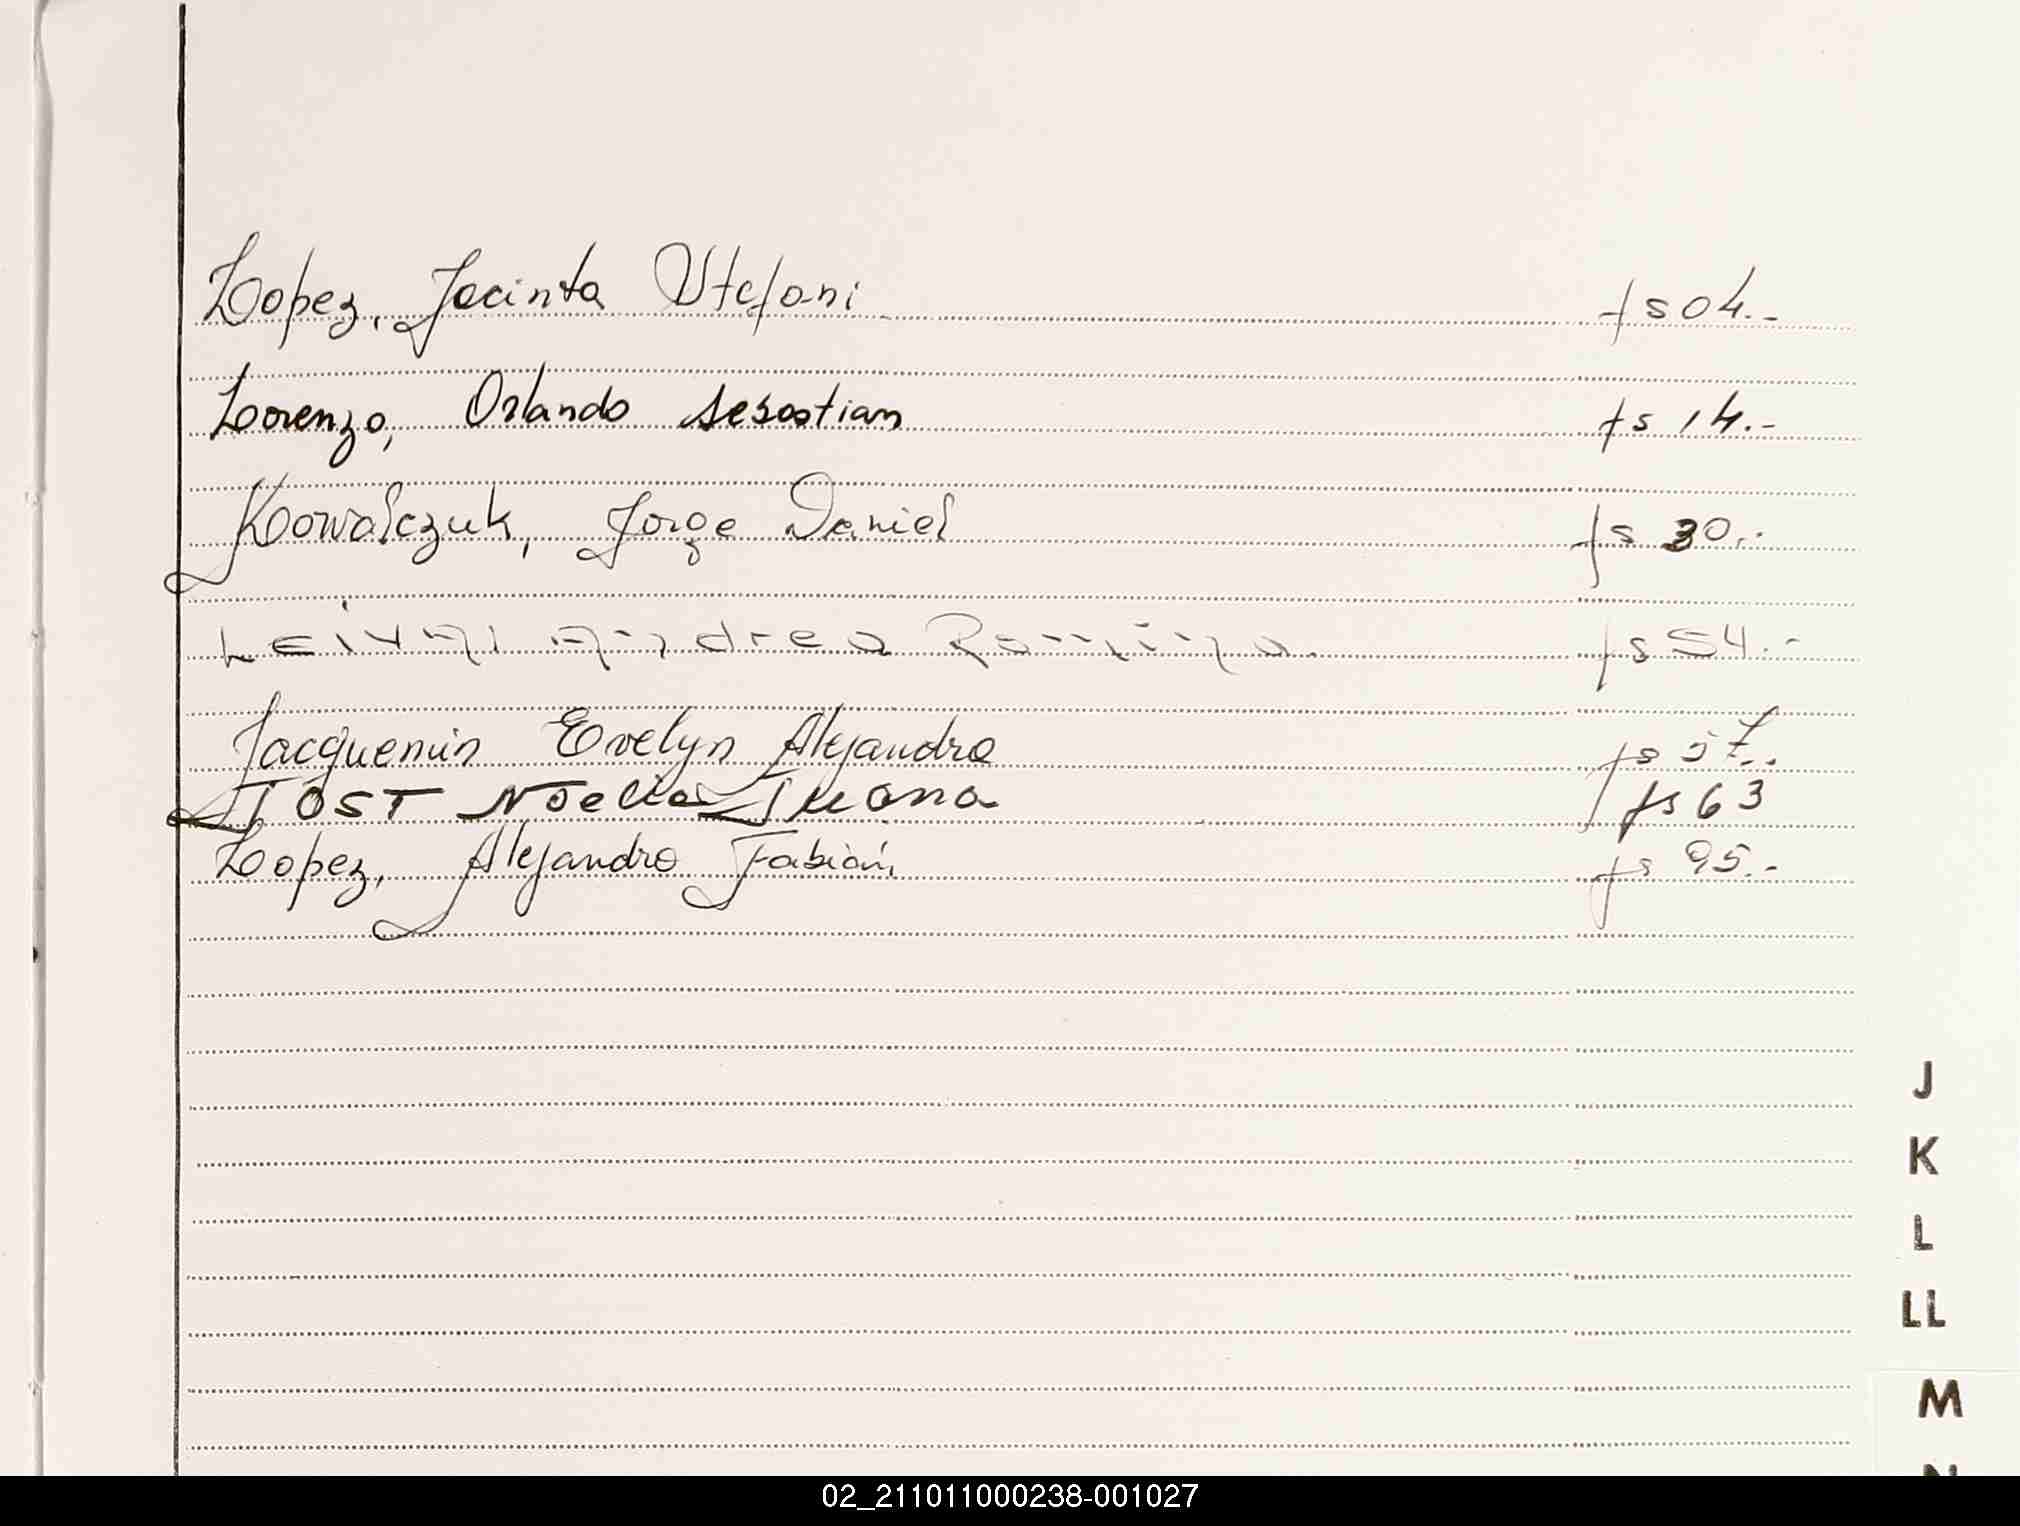 Lopez, Jacinta Stefani fs 04.-
Lorenzo, Orlando Sebastian fs 14.-
Kowalczuk, Jorge Daniel fs 30.-
Andrea Romina. fs 54.-
Jacquemin Evelyn Alejandra fs 57..
JOST Noelia Juana fs 63
Lopez, Alejandro Fabián fs 95.-
J
K
L
LL
M
N
02_211011000238-001027